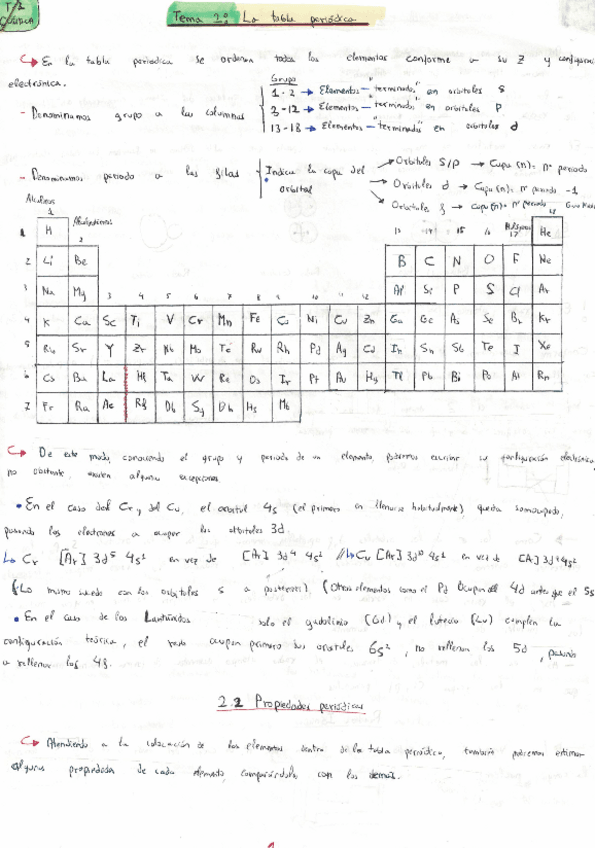 T/2
QUÍMICA
Tema 2: La tabla periódica
En la tabla periodica se ordenan todos los elementos conforme a su Z y configuración
electrónica.
Grupo
1-2 → Elementos "terminados" en orbitales s
- Denominamos grupo a las columnas
3-12 → Elementos "terminados" en orbitales p
13-18 → Elementos "terminados" en orbitales d
- Denominamos periodo a las filas
Indica la capa del
orbital
Orbitales s/p → Capa (n)= nº periodo
Orbitales d → Capa (n)= nº periodo -1
Orbitales f → Capa (n)= nº periodo
Alcalinos
1 18
1 H Alcalinotérreos 2 13 14 15 16 17 He
2 Li Be B C N O F Ne
3 Na Mg 3 4 5 6 7 8 9 10 11 12 Al Si P S Cl Ar
4 K Ca Sc Ti V Cr Mn Fe Co Ni Cu Zn Ga Ge As Se Br Kr
5 Rb Sr Y Zr Nb Mo Tc Ru Rh Pd Ag Cd In Sn Sb Te I Xe
6 Cs Ba La Hf Ta W Re Os Ir Pt Au Hg Tl Pb Bi Po At Rn
7 Fr Ra Ac Rf Db Sg Hs Mt
De este modo, conociendo el grupo y periodo de un elemento, podemos escribir su configuración electrónica,
no obstante, existen algunas excepciones.
• En el caso del Cr y del Cu, el orbital 4s (el primero en llenarse habitualmente) queda semiocupado,
pasando los electrones a ocupar los orbitales 3d.
↳ Cr [Ar] 3d⁵ 4s¹ en vez de [Ar] 3d⁴ 4s² // ↳ Cu [Ar] 3d¹⁰ 4s¹ en vez de [Ar] 3d⁹ 4s²
(Lo mismo sucede con los orbitales s a posteriori). (Otros elementos como el Pd ocupan el 4d antes que el 5s
• En el caso de los Lantánidos solo el gadolinio (Gd) y el lutecio (Lu) cumplen la
configuración teórica, el resto ocupan primero sus orbitales 6s², no rellenan los 5d, pasando
a rellenar los 4f.
2.2 Propiedades periódicas
Atendiendo a la colocación de los elementos dentro de la tabla periódica, también podremos estimar
algunas propiedades de cada elemento, comparándolas con los demás.